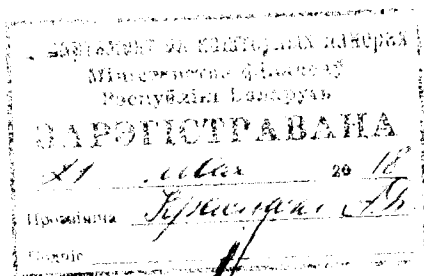 Дэпартамент па каштоўных паперах
Міністэрства фінансаў
Рэспублікі Беларусь
ЗАРЭГІСТРАВАНА
21 мая 20 18
Прозвішча
Подпіс